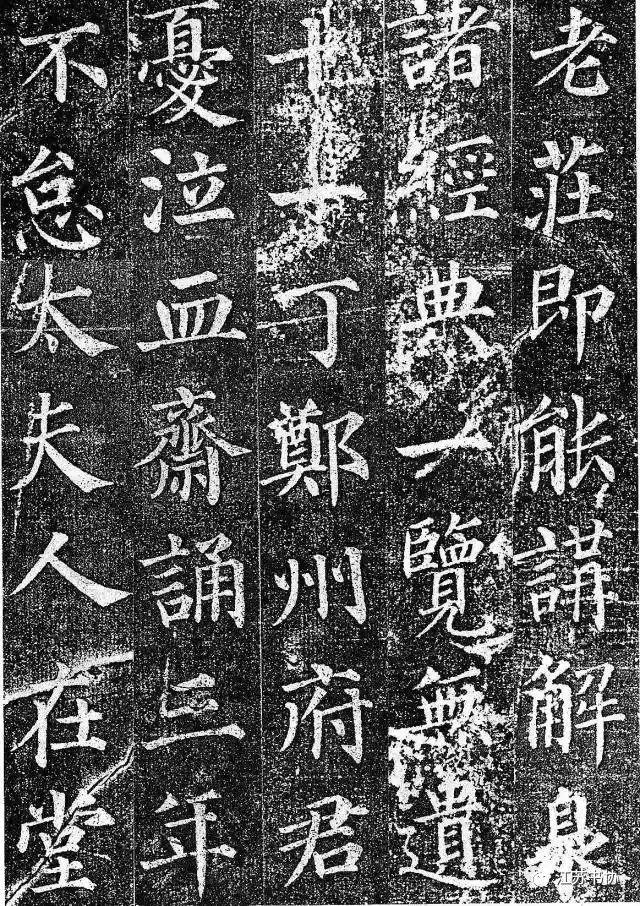 老莊即能講解臮
諸經典一覽無遺
十一丁鄭州府君
憂泣血齋誦三年
不怠太夫人在堂
江苏书协